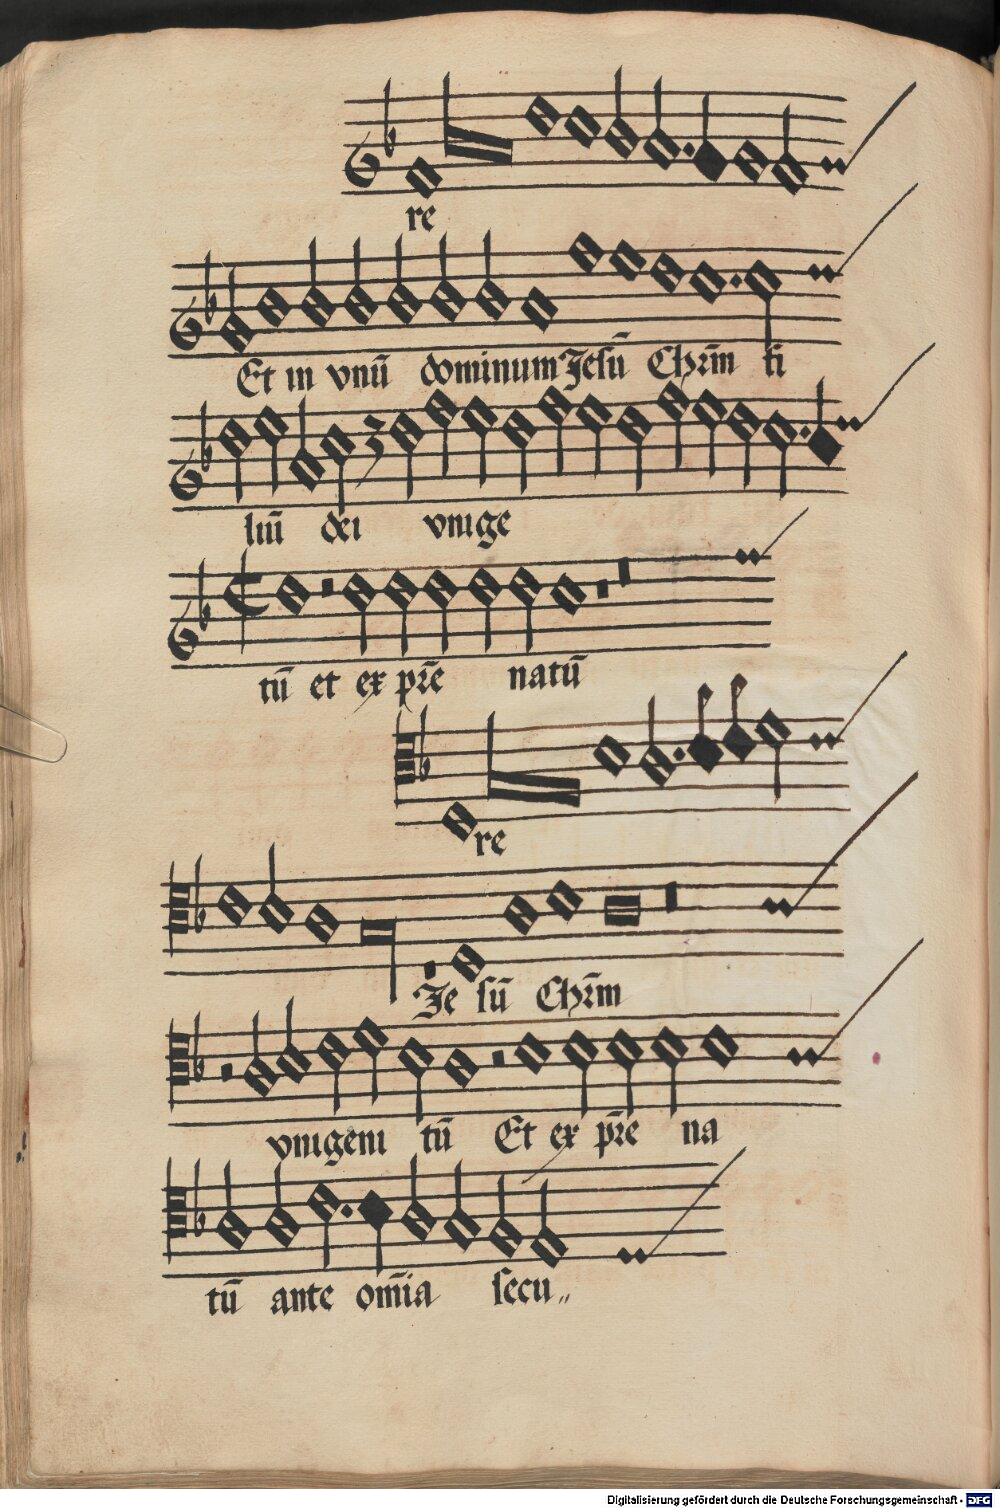 re
Et in vnū dominum Jesū Chrm̄ fi
liū dei vnige
tū et ex pr̄e natū
re
Je sū Chrm̄
vnigeni tū Et ex pr̄e na
tū ante om̄ia secu
Digitalisierung gefördert durch die Deutsche Forschungsgemeinschaft - DFG